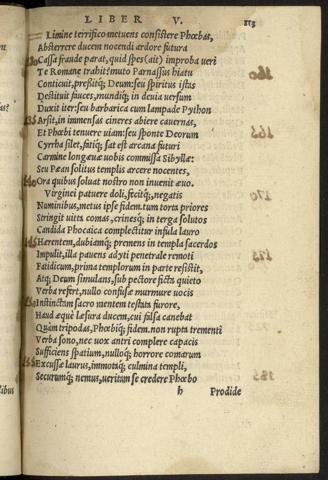 LIBER V. 113
Limine terrifico metuens consistere Phœbas,
Absterrere ducem nocendi ardore futura
Cassa fraude parat, quid spes (ait) improba veri
Te Romane trahit? muto Parnassus hiatu
Conticuit, preſſitq; Deum: ſeu ſpiritus iſtas
Deſtituit fauces, mundiq; in devia verſum
Duxit iter: ſeu barbarica cum lampade Python
Arſit, in immenſas cineres abiere cavernas,
Et Phœbi tenuere viam: ſeu ſponte Deorum
Cyrrha ſilet, fatiq; ſat eſt arcana futuri
Carmine longævæ vobis commiſſa Sibyllæ:
Seu Pæan ſolitus templis arcere nocentes,
Ora quibus ſoluat noſtro non invenit ævo.
Virginei patuere doli, fecitq; negatis
Numinibus, metus ipſe fidem. tum torta priores
Stringit vitta comas, crineſq; in terga ſolutos
Candida Phocaica complectitur inſula lauro
Hærentem, dubiamq; premens in templa ſacerdos
Impulit, illa pavens adyti penetrale remoti
Fatidicum, prima templorum in parte reſiſtit,
Atq; Deum ſimulans, ſub pectore ficta quieto
Verba refert, nullo confuſæ murmure vocis
Inſtinctam ſacro mentem teſtata furore,
Haud æquè læſura ducem, cui falſa canebat
Quàm tripodas, Phœbiq; fidem. non rupta trementi
Verba ſono, nec vox antri complere capacis
Sufficiens ſpatium, nulloq; horrore comarum
Excuſſæ laurus, immotaq; culmina templi,
Securumq; nemus, veritam ſe credere Phœbo
h Prodide